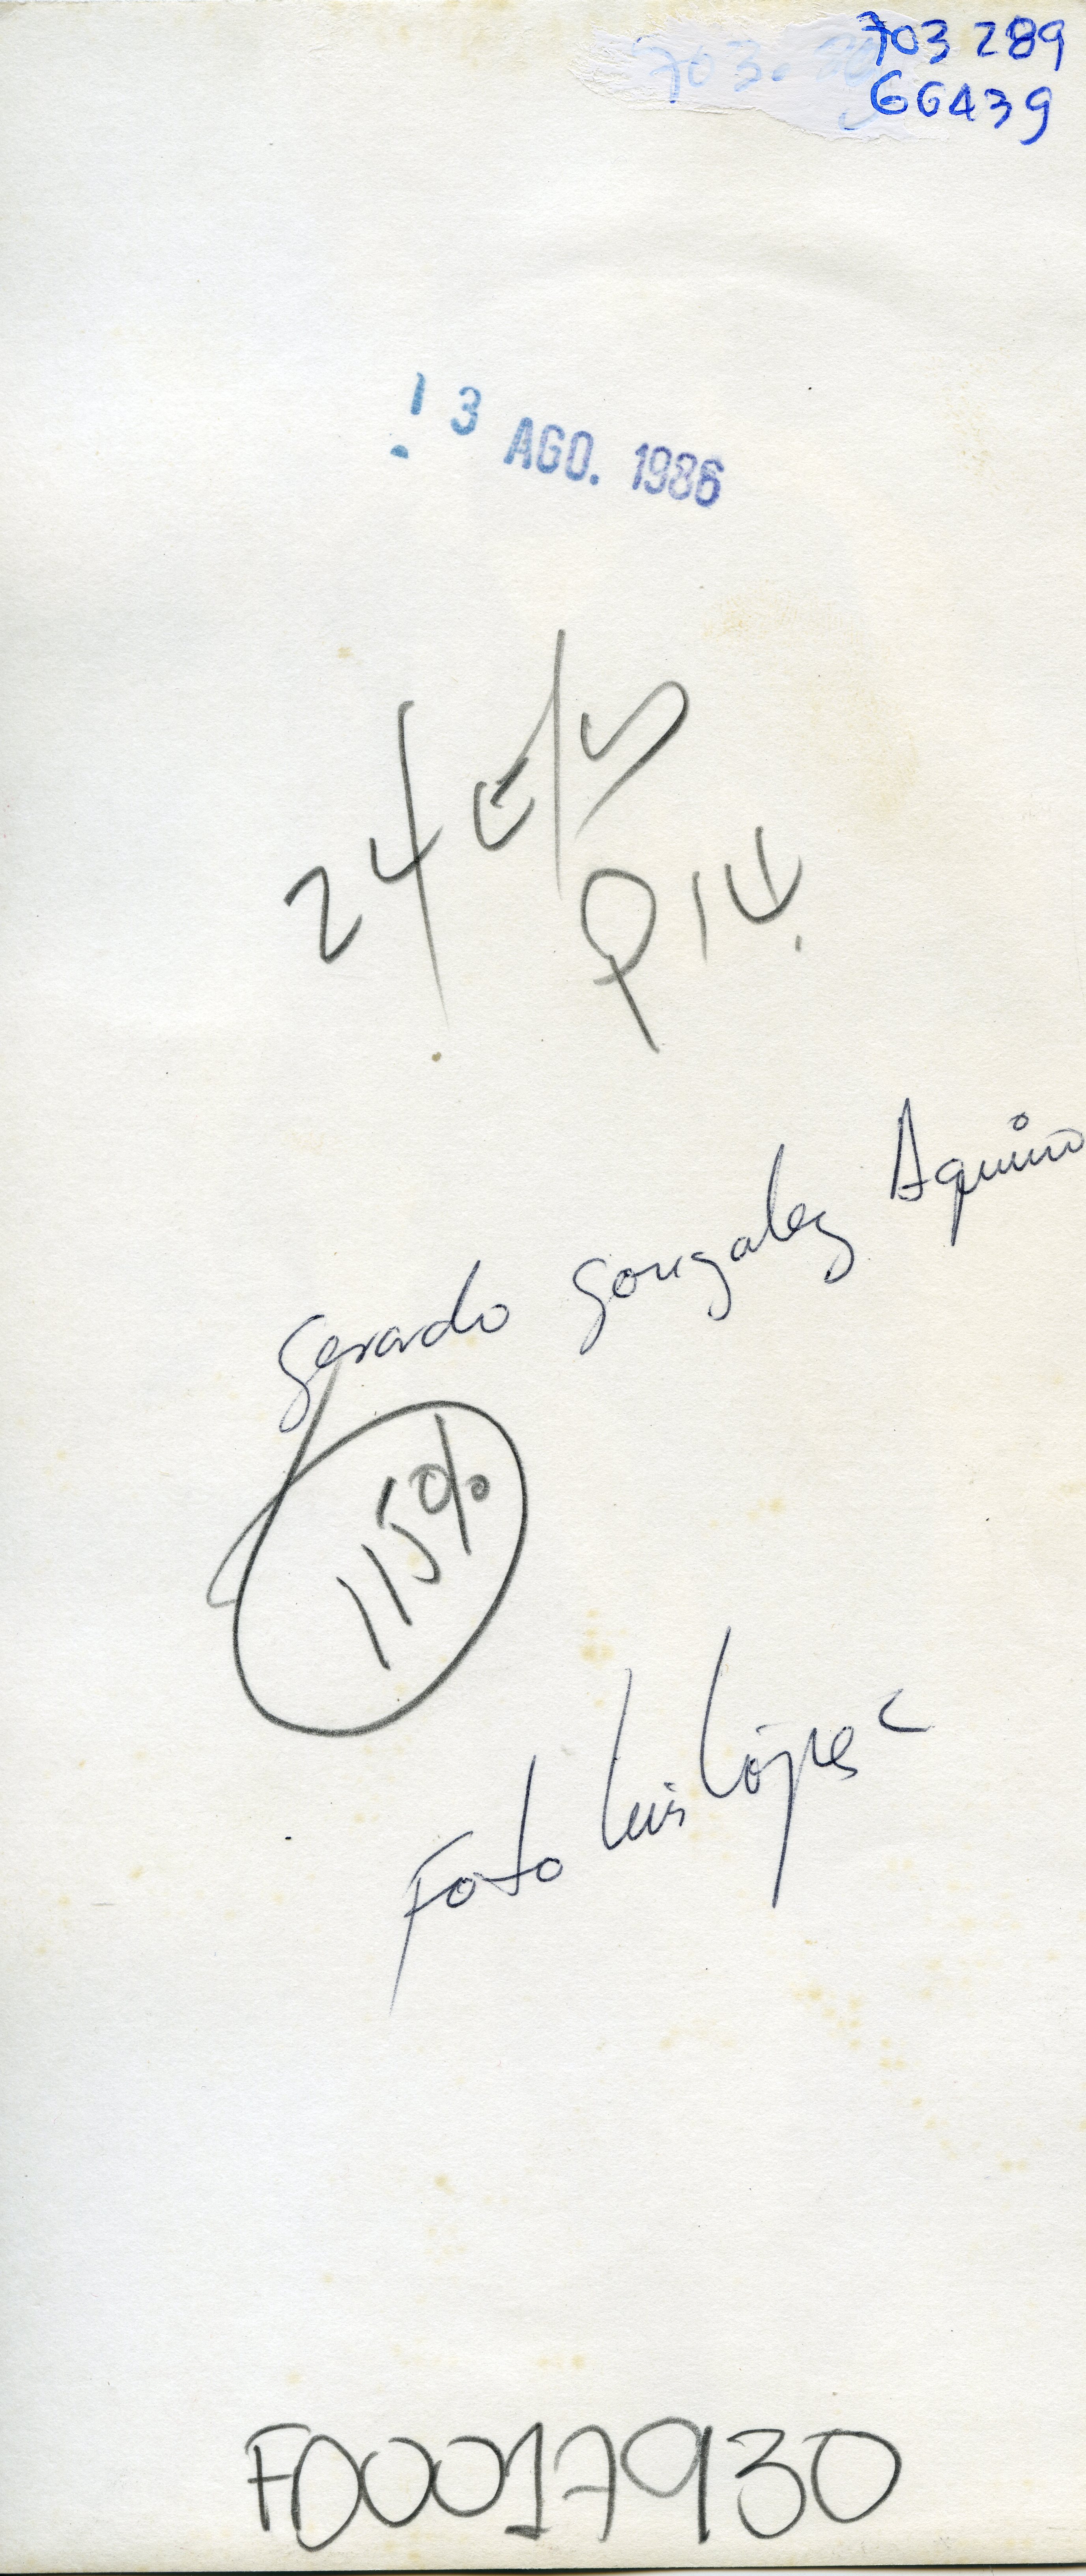 703 289
66439
13 AGO. 1986
24
P14
Gerardo Gonzalez Aquino
115%
Foto Luis López
F00017930